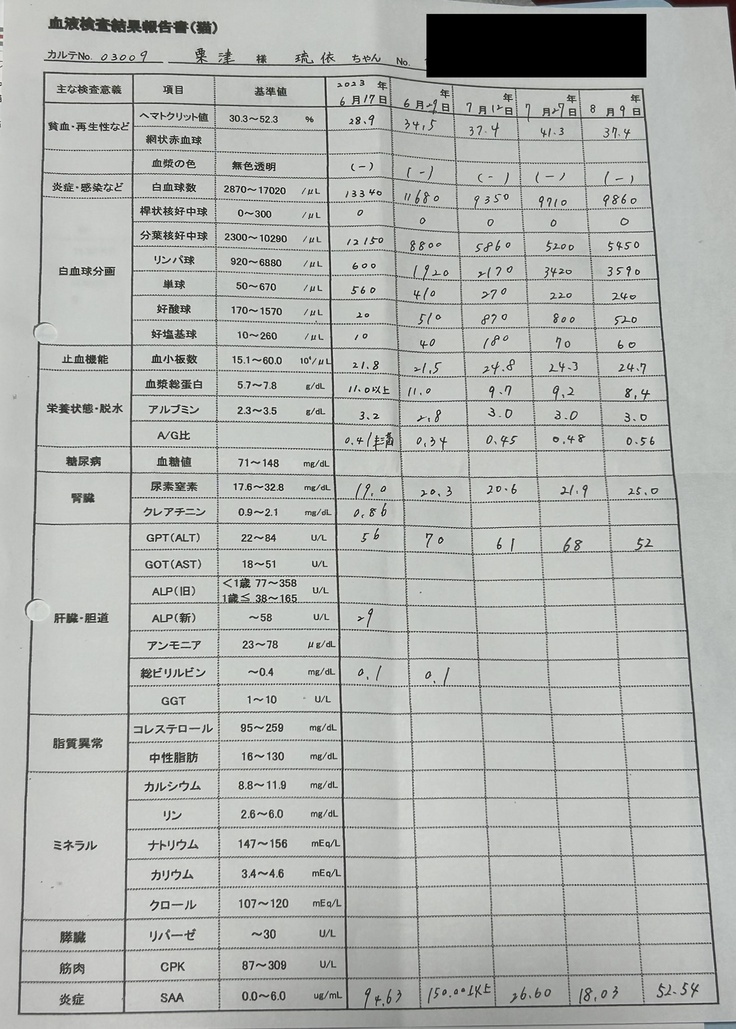 血液検査結果報告書(猫)
カルテNo. 03009 粟津 様 琉依 ちゃん No.
主な検査意義 項目 基準値 2023年6月17日 年6月29日 年7月12日 年7月27日 年8月9日
貧血・再生性など ヘマトクリット値 30.3~52.3 % 28.9 34.5 37.4 41.3 37.4
網状赤血球
血漿の色 無色透明 (-) (-) (-) (-) (-)
炎症・感染など 白血球数 2870~17020 /μL 13340 11680 9350 9710 9860
白血球分画 桿状核好中球 0~300 /μL 0 0 0 0 0
分葉核好中球 2300~10290 /μL 12150 8800 5860 5200 5450
リンパ球 920~6880 /μL 600 1920 2170 3420 3590
単球 50~670 /μL 560 410 270 220 240
好酸球 170~1570 /μL 20 510 870 800 520
好塩基球 10~260 /μL 10 40 180 70 60
止血機能 血小板数 15.1~60.0 10⁴/μL 21.8 21.5 24.8 24.3 24.7
栄養状態・脱水 血漿総蛋白 5.7~7.8 g/dL 11.0以上 11.0 9.7 9.2 8.4
アルブミン 2.3~3.5 g/dL 3.2 2.8 3.0 3.0 3.0
A/G比 0.41未満 0.34 0.45 0.48 0.56
糖尿病 血糖値 71~148 mg/dL
腎臓 尿素窒素 17.6~32.8 mg/dL 19.0 20.3 20.6 21.9 25.0
クレアチニン 0.9~2.1 mg/dL 0.86
肝臓・胆道 GPT(ALT) 22~84 U/L 56 70 61 68 52
GOT(AST) 18~51 U/L
ALP(旧) <1歳 77~358 U/L
1歳≦ 38~165
ALP(新) ~58 U/L 29
アンモニア 23~78 μg/dL
総ビリルビン ~0.4 mg/dL 0.1 0.1
GGT 1~10 U/L
脂質異常 コレステロール 95~259 mg/dL
中性脂肪 16~130 mg/dL
ミネラル カルシウム 8.8~11.9 mg/dL
リン 2.6~6.0 mg/dL
ナトリウム 147~156 mEq/L
カリウム 3.4~4.6 mEq/L
クロール 107~120 mEq/L
膵臓 リパーゼ ~30 U/L
筋肉 CPK 87~309 U/L
炎症 SAA 0.0~6.0 ug/mL 94.63 150.00以上 26.60 18.03 52.54